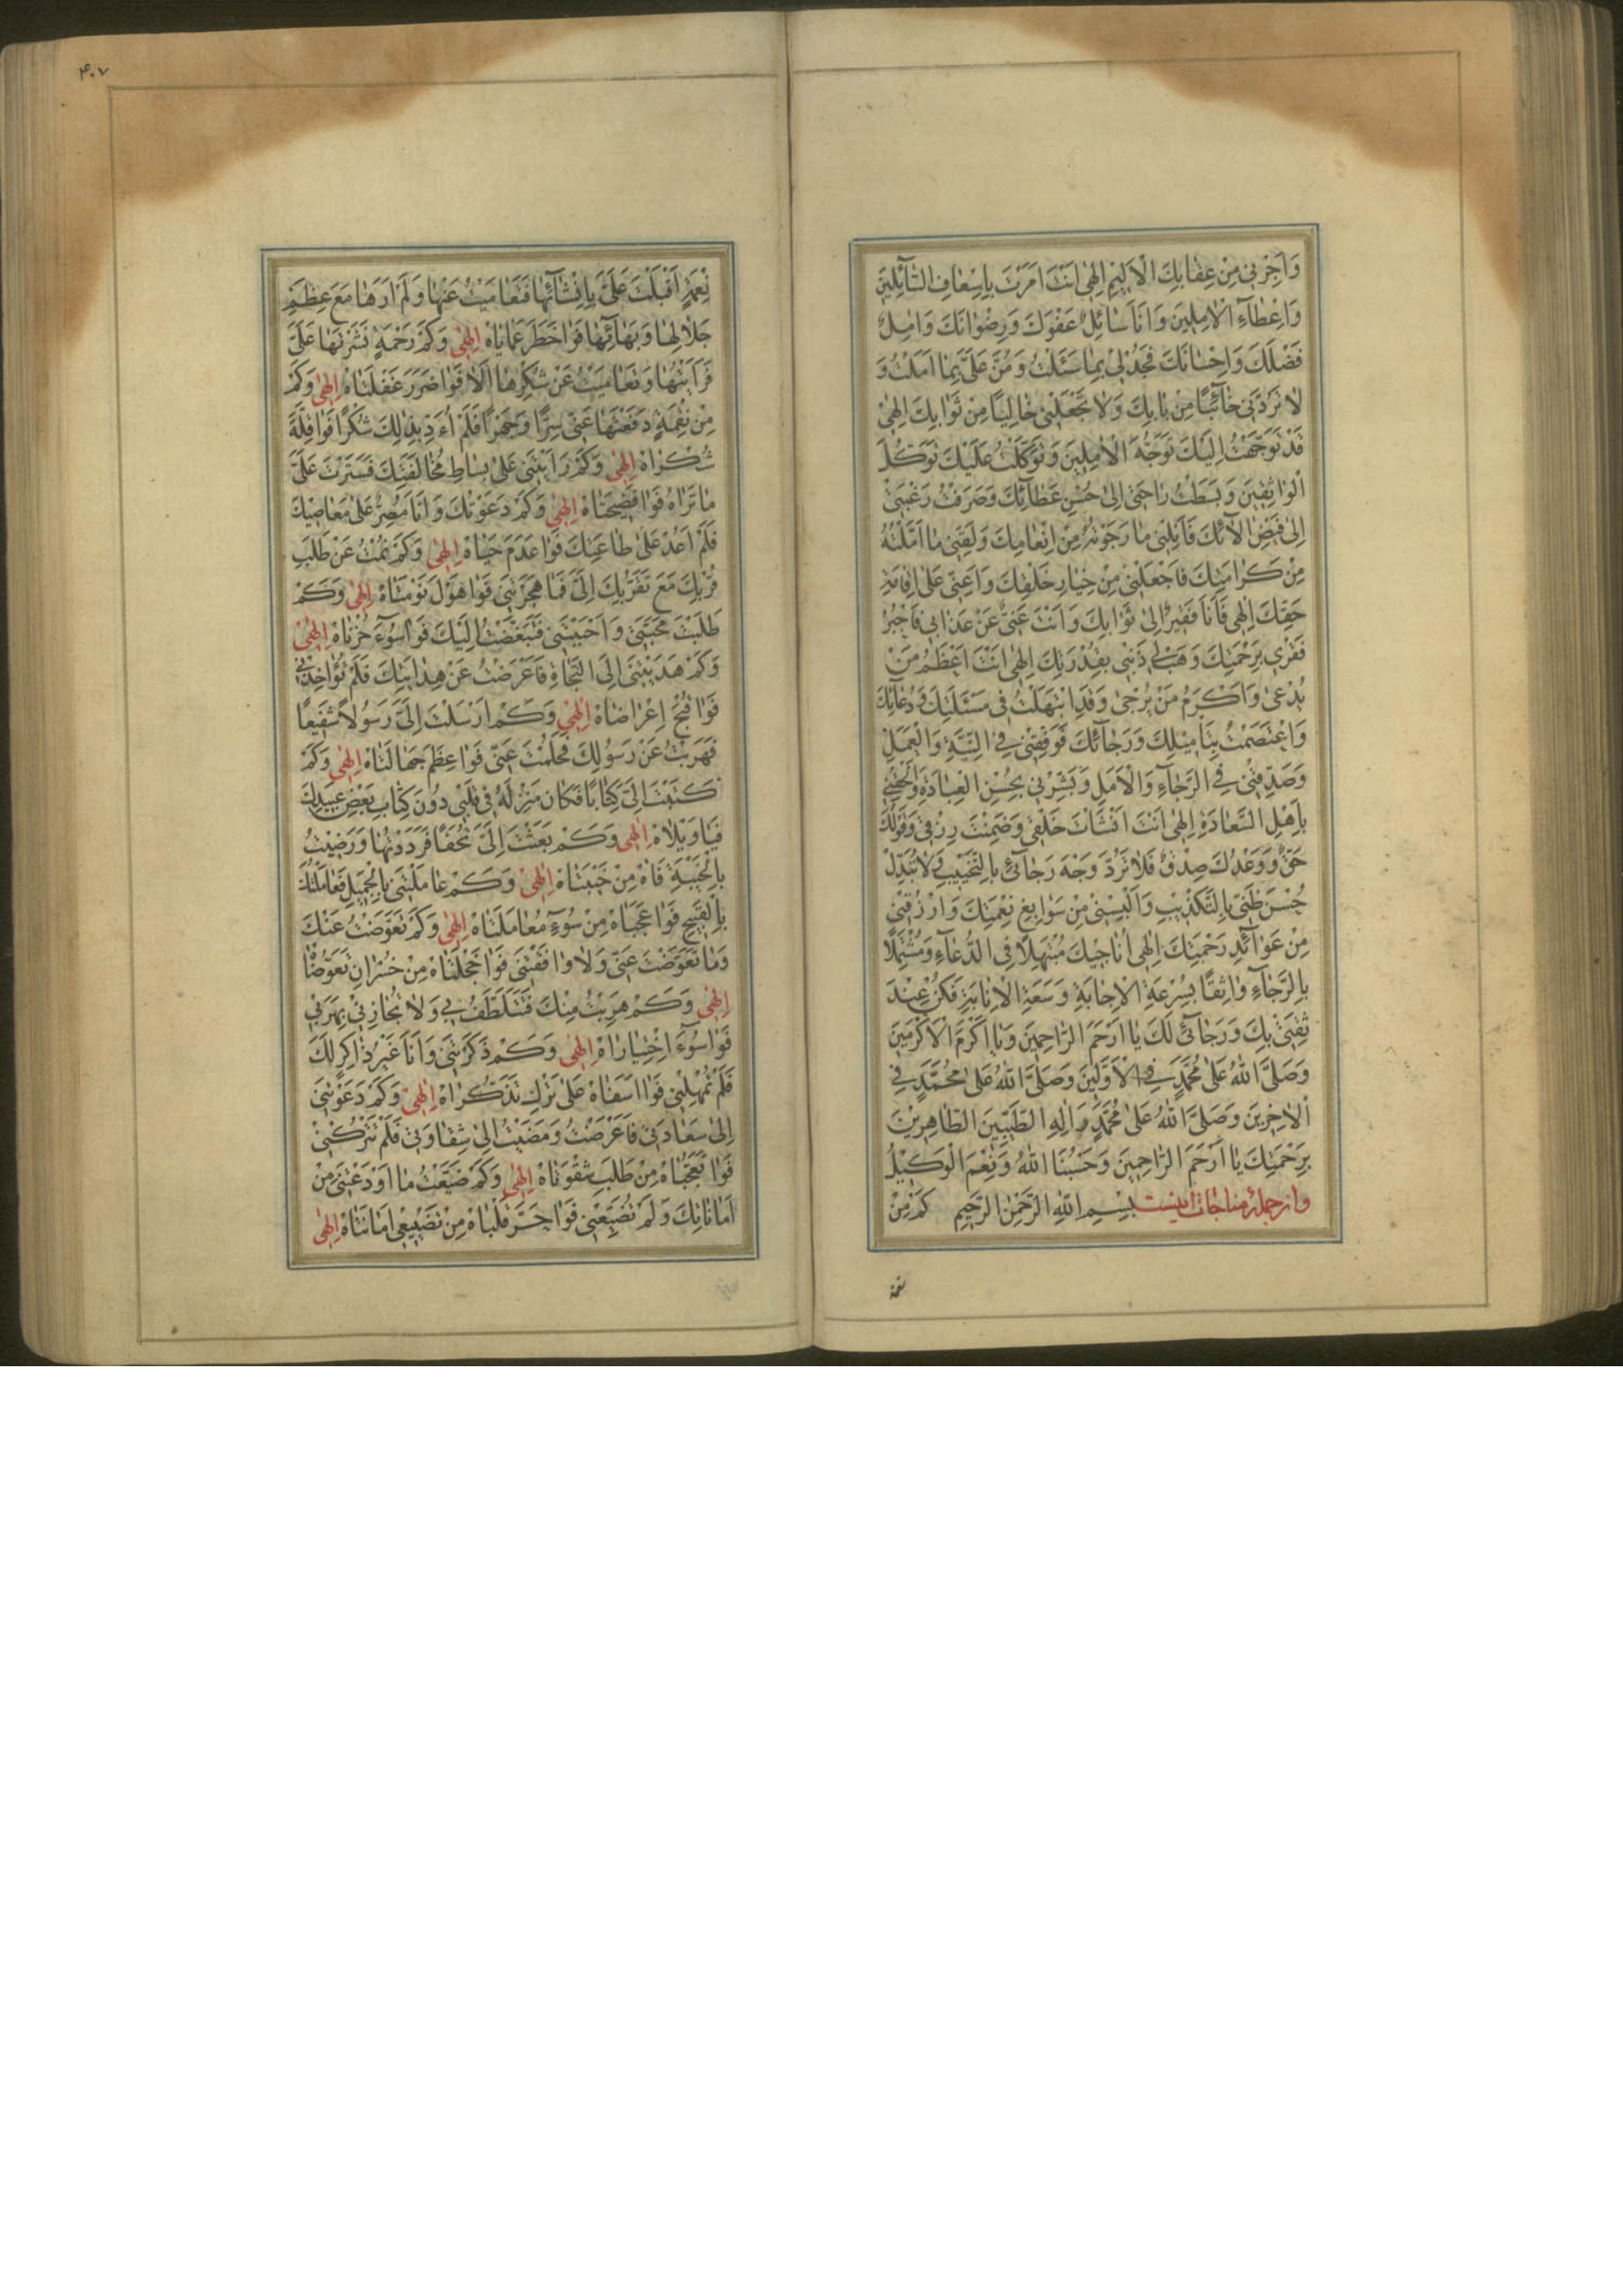 وَاَجِرْنی مِنْ عِقٰابِكَ الْاَلیٖمِ اِلٰهی اَنْتَ اَمَرْتَ بِاِسْعٰافِ السّٰآئِلیٖنَ
وَاِعْطٰآءِ الْاٰمِلیٖنَ وَاَنَا سٰائِلٌ عَفْوَكَ وَرِضْوٰانَكَ وَاٰمِلٌ
فَضْلَكَ وَاِحْسٰانَكَ فَجُدْلیٖ بِمٰا سَئَلْتُ وَمُنَّ عَلَیَّ بِمٰا اَمَلْتُ وَ
لٰا تَرُدَّنیٖ خٰآئِبًا مِنْ بٰابِكَ وَلٰا تَجْعَلْنیٖ خٰالِیًا مِنْ ثَوٰابِكَ اِلٰهیٖ
قَدْ تَوَجَّهْتُ اِلَیْكَ تَوَجُّهَ الْاٰمِلیٖنَ وَتَوَكَّلْتُ عَلَیْكَ تَوَكُّلَ
الْوٰاثِقیٖنَ وَبَسَطْتُ رٰاحَتیٖ اِلیٰ حُسْنِ عَطٰآئِكَ وَصَرَفْتُ رَغْبَتیٖ
اِلیٰ فَیْضِ اٰلٰآئِكَ فَاَنِلْنیٖ مٰا رَجَوْتُهُ مِنْ اِنْعٰامِكَ وَلَقِّنیٖ مٰا اَمَّلْتُهُ
مِنْ كَرٰامَتِكَ فَاجْعَلْنیٖ مِنْ خِیٰارِ خَلْقِكَ وَاَعِنّیٖ عَلیٰ اِقٰامَةِ
حَقِّكَ اِلٰهی فَاَنَا فَقیٖرٌ اِلیٰ ثَوٰابِكَ وَاَنْتَ غَنِیٌّ عَنْ عَذٰابیٖ فَاجْبُرْ
فَقْریٖ بِرَحْمَتِكَ وَهَبْ لیٖ ذَنْبیٖ بِقُدْرَتِكَ اِلٰهیٖ اَنْتَ اَعْظَمُ مَنْ
یُدْعیٰ وَاَكْرَمُ مَنْ یُرْجیٰ وَقَدِ ابْتَهَلْتُ فیٖ مَسْئَلَتِكَ وَدُعٰآئِكَ
وَاعْتَصَمْتُ بِتَأْمیٖلِكَ وَرَجٰآئِكَ فَوَفِّقْنیٖ فِی النِّیَّةِ وَالْعَمَلِ
وَصَدِّقْنیٖ فِی الرَّجٰآءِ وَالْاَمَلِ وَبَشِّرْنیٖ بِحُسْنِ الْعِبٰادَةِ وَاَلْحِقْنیٖ
بِاَهْلِ السَّعٰادَةِ اِلٰهیٖ اَنْتَ اَنْشَأْتَ خَلْقیٖ وَضَمِنْتَ رِزْقیٖ وَقَوْلُكَ
حَقٌّ وَوَعْدُكَ صِدْقٌ فَلٰا تَرُدَّ وَجْهَ رَجٰآئیٖ بِالتَّخْیٖیبِ وَلٰا تُبَدِّلْ
حُسْنَ ظَنّیٖ بِالتَّكْذیٖبِ وَاَلْبِسْنیٖ مِنْ سَوٰابِغِ نِعْمَتِكَ وَارْزُقْنیٖ
مِنْ عَوٰآئِدِ رَحْمَتِكَ اِلٰهی اُنٰاجیٖكَ مُبْتَهِلًا فِی الدُّعٰآءِ وَمُشْتَمِلًا
بِالرَّجٰآءِ وٰاثِقًا بِسُرْعَةِ الْاِجٰابَةِ وَسَعَةِ الْاِنٰابَةِ فَكُنْ عِنْدَ
ثِقَتیٖ بِكَ وَرَجٰآئیٖ لَكَ یٰا اَرْحَمَ الرّٰاحِمیٖنَ وَیٰا اَكْرَمَ الْاَكْرَمیٖنَ
وَصَلَّی اللّٰهُ عَلیٰ مُحَمَّدٍ فِی الْاَوَّلیٖنَ وَصَلَّی اللّٰهُ عَلیٰ مُحَمَّدٍ فِی
الْاٰخِریٖنَ وَصَلَّی اللّٰهُ عَلیٰ مُحَمَّدٍ وَاٰلِهِ الطَّیِّبیٖنَ الطّٰاهِریٖنَ
بِرَحْمَتِكَ یٰا اَرْحَمَ الرّٰاحِمیٖنَ وَحَسْبُنَا اللّٰهُ وَنِعْمَ الْوَكیٖلُ
واز جملهٔ مناجات اینست بِسْمِ اللّٰهِ الرَّحْمٰنِ الرَّحیٖمِ كَمْ مِنْ
نعمة
۴۰۷
نِعْمَةٍ اَقْبَلَتْ عَلَیَّ بِاِنْشٰآئِهٰا فَتَعٰامَیْتُ عَنْهٰا وَلَمْ اَرَهٰا مَعَ عِظَمِ
جَلٰالِهٰا وَبَهٰآئِهٰا فَوٰا خَطَرَ عَمٰایٰاهْ اِلٰهیٖ وَكَمْ رَحْمَةٍ نَشَرْتَهٰا عَلَیَّ
فَرَاَیْتُهٰا وَتَعٰامَیْتُ عَنْ شُكْرِهٰا اَلٰا فَوٰا ضَرَرَ غَفْلَتٰاهْ اِلٰهیٖ وَكَمْ
مِنْ نِقْمَةٍ دَفَعْتَهٰا عَنّیٖ سِرًّا وَجَهْرًا فَلَمْ اُءَدِّ بِذٰلِكَ شُكْرًا فَوٰا قِلَّةَ
شُكْرٰاهْ اِلٰهیٖ وَكَمْ رَاَیْتَنیٖ عَلیٰ بِسٰاطِ مُخٰالَفَتِكَ فَسَتَرْتَ عَلَیَّ
مٰا تَرٰاهُ فَوٰا فَضیٖحَتٰاهْ اِلٰهیٖ وَكَمْ دَعَوْتُكَ وَاَنَا مُصِرٌّ عَلیٰ مَعٰاصیٖكَ
فَلَمْ اَعُدْ عَلیٰ طٰاعَتِكَ فَوٰا عَدَمَ حَیٰاهْ اِلٰهیٖ وَكَمْ نِمْتُ عَنْ طَلَبِ
قُرْبِكَ مَعَ تَقَرُّبِكَ اِلَیَّ فَمٰا هَجَرْتَنیٖ فَوٰا هَوْلَ نَوْمَتٰاهْ اِلٰهیٖ وَكَمْ
طَلَبْتَ مَحَبَّتیٖ وَاَحْبَبْتَنیٖ فَتَبَغَّضْتُ اِلَیْكَ فَوٰا سُوٓءَ حُزْنٰاهْ اِلٰهیٖ
وَكَمْ هَدَیْتَنیٖ اِلَی النَّجٰاةِ فَاَعْرَضْتُ عَنْ هِدٰایَتِكَ فَلَمْ تُؤٰاخِذْنیٖ
فَوٰا قُبْحَ اِعْرٰاضٰاهْ اِلٰهیٖ وَكَمْ اَرْسَلْتَ اِلَیَّ رَسُولًا شَفیٖعًا
فَهَرَبْتُ عَنْ رَسُولِكَ فَحَلُمْتَ عَنّیٖ فَوٰا عِظَمَ جَهٰالَتٰاهْ اِلٰهیٖ وَكَمْ
كَتَبْتَ اِلَیَّ كِتٰابًا فَكٰانَ مَنْزِلُهُ فیٖ قَلْبیٖ دُونَ كِتٰابِ بَعْضِ عَبیٖدِكَ
فَیٰا وَیْلٰاهْ اِلٰهیٖ وَكَمْ بَعَثْتَ اِلَیَّ تُحَفًا فَرَدَدْتُهٰا وَرَضیٖتُ
بِالْخَیْبَةِ فَاٰهْ مِنْ خَیْبَتٰاهْ اِلٰهیٖ وَكَمْ عٰامَلْتَنیٖ بِالْجَمیٖلِ فَعٰامَلْتُكَ
بِالْقَبیٖحِ فَوٰا عَجَبٰاهْ مِنْ سُوٓءِ مُعٰامَلَتٰاهْ اِلٰهیٖ وَكَمْ تَعَوَّضْتُ عَنْكَ
وَمٰا تَعَوَّضْتَ عَنّیٖ وَلٰا وٰافَقْتَنیٖ فَوٰا خَجْلَتٰاهْ مِنْ خُسْرٰانِ تَعَوُّضٰا
اِلٰهیٖ وَكَمْ هَرَبْتُ مِنْكَ فَتَتَلَطَّفُ بیٖ وَلٰا تُجٰازیٖنیٖ بِهَرَبیٖ
فَوٰا سُوٓءَ اخْتِیٰارٰاهْ اِلٰهیٖ وَكَمْ ذَكَرْتَنیٖ وَاَنَا غَیْرُ ذٰاكِرٍ لَكَ
فَلَمْ تُمْهِلْنیٖ فَوٰا اَسَفٰاهْ عَلیٰ تَرْكِ تَذَكُّرٰاهْ اِلٰهیٖ وَكَمْ دَعَوْتَنیٖ
اِلیٰ سَعٰادَتیٖ فَاَعْرَضْتُ وَمَضَیْتُ اِلیٰ شِقٰاوَتیٖ فَلَمْ تَتْرُكْنیٖ
فَوٰا تَعَجُّبٰاهْ مِنْ طَلَبِ شِقْوَتٰاهْ اِلٰهیٖ وَكَمْ ضَیَّعْتُ مٰا اَوْدَعْتَنیٖ مِنْ
اَمٰانٰاتِكَ وَلَمْ تُضَیِّعْنیٖ فَوٰا حَسْرَ قَلْبٰاهْ مِنْ تَضْیٖیعیٖ اَمٰانَتٰاهْ اِلٰهیٖ